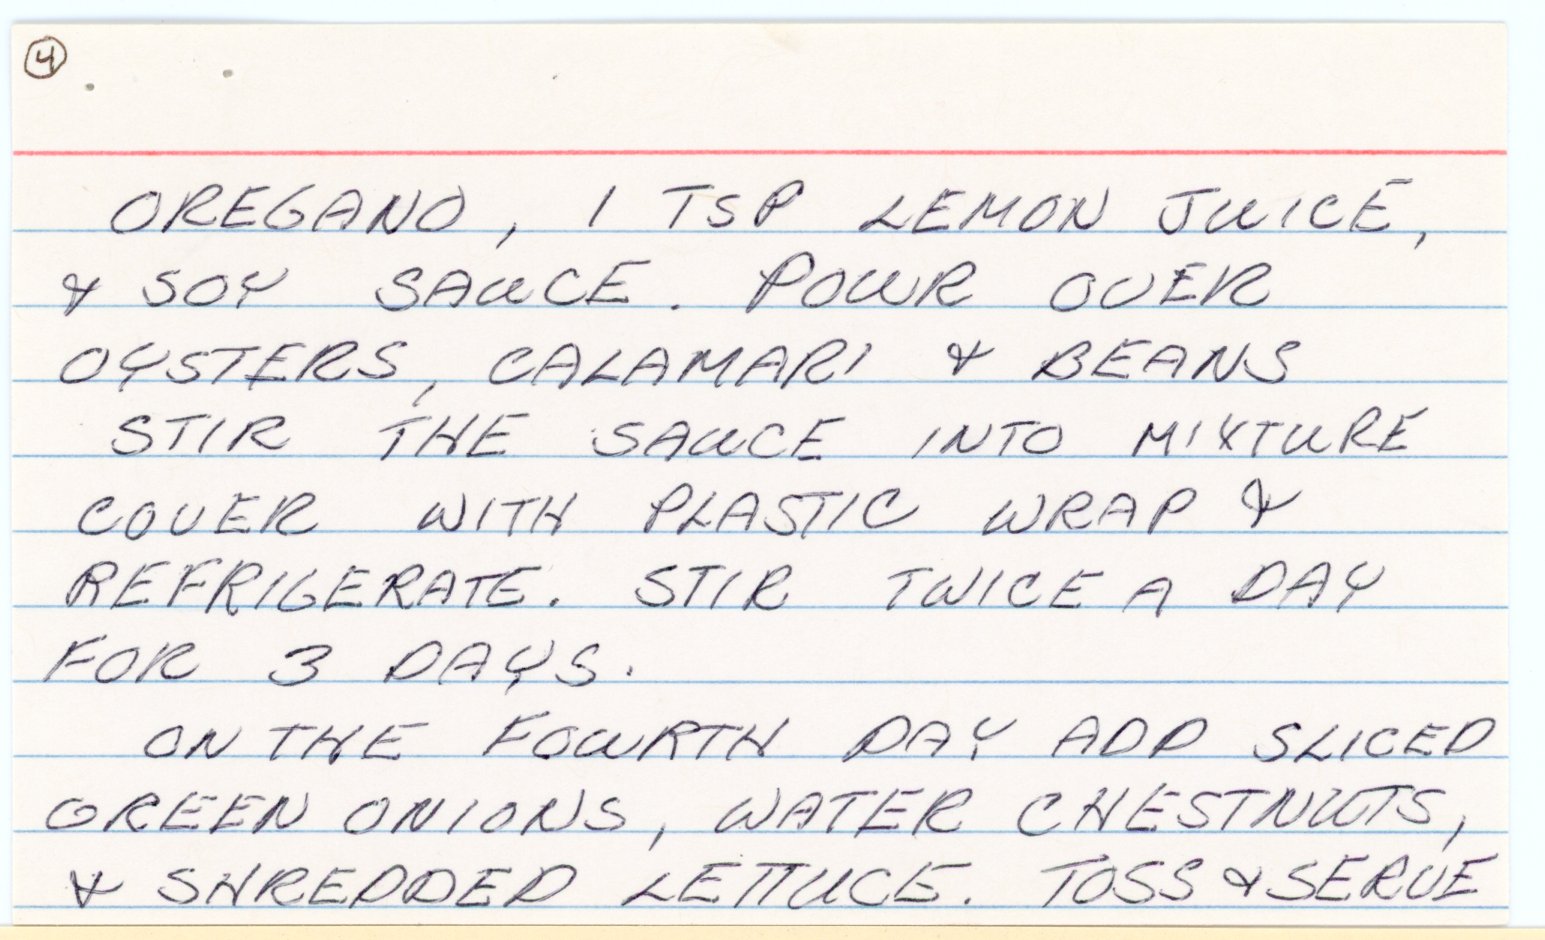 4
OREGANO, 1 TSP LEMON JUICE,
& SOY SAUCE. POUR OVER
OYSTERS, CALAMARI & BEANS
STIR THE SAUCE INTO MIXTURE
COVER WITH PLASTIC WRAP &
REFRIGERATE. STIR TWICE A DAY
FOR 3 DAYS.
ON THE FOURTH DAY ADD SLICED
GREEN ONIONS, WATER CHESTNUTS,
& SHREDDED LETTUCE. TOSS & SERVE